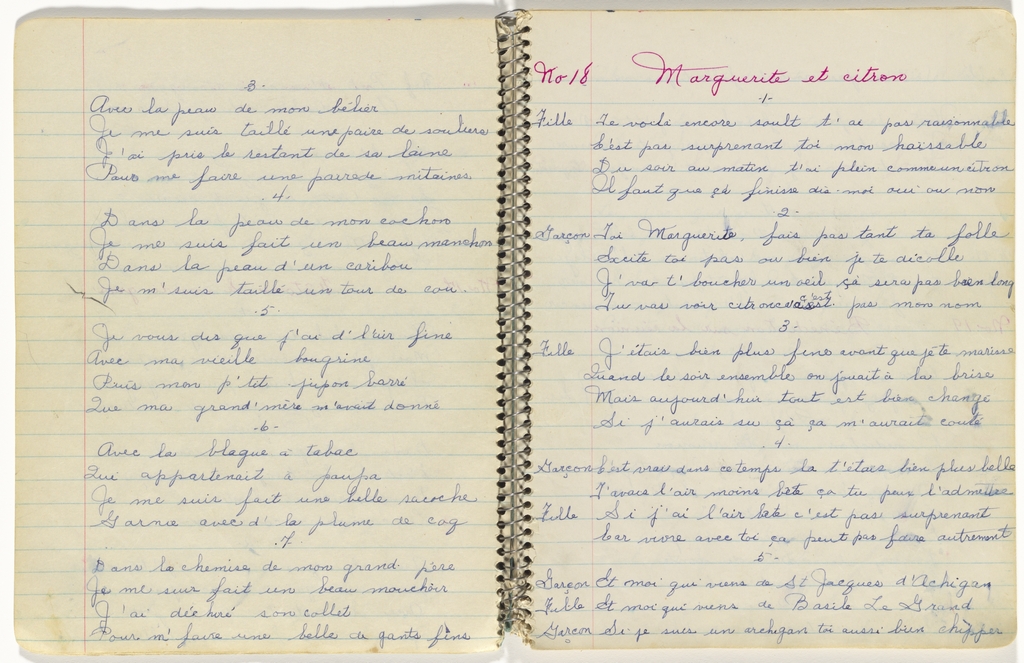 -3-
Avec la peau de mon bélier
Je me suis taillé une paire de souliers
J'ai pris le restant de sa laine
Pour me faire une paire de mitaines
-4-
Dans la peau de mon cochon
Je me suis fait un beau manchon
Dans la peau d'un caribou
Je m'suis taillé un tour de cou
-5-
Je vous dis que j'ai d'l'air fine
Avec ma vieille bougrine
Puis mon p'tit jupon barré
Que ma grand'mère m'avait donné
-6-
Avec la blague à tabac
Qui appartenait à paupa
Je me suis fait une belle sacoche
Garnie avec d'la plume de coq
-7-
Dans la chemise de mon grand-père
Je me suis fait un beau mouchoir
J'ai déchiré son collet
Pour m'faire une belle de gants fins
No 18 Marguerite et citron
-1-
Fille Te voilà encore soult t'ai pas raisonnable
C'est pas surprenant toi mon haissable
Du soir au matin t'ai plein comme un citron
Il faut que çà finisse dis-moi oui ou non
2-
Garçon Toi Marguerite, fais pas tant ta folle
Excite toi pas ou bien je te dicolle
J'va t'boucher un oeil çà sera pas bien long
Tu vas voir citron c'est pas mon nom
3-
Fille J'étais bien plus fine avant que je te marisse
Quand le soir ensemble on jouait à la brise
Mais aujourd'hui tout est bien changé
Si j'aurais su çà ça m'aurait couté
4-
Garçon C'est vrai dans ce temps la t'étais bien plus belle
J'avais l'air moins bête ça tu peux l'admettre
Fille Si j'ai l'air bête c'est pas surprenant
Car vivre avec toi ça peut pas faire autrement
5-
Garçon Et moi qui viens de St Jacques d'Achigan
Fille Et moi qui viens de Basile Le Grand
Garçon Si je suis un archigan toi aussi bien chipper